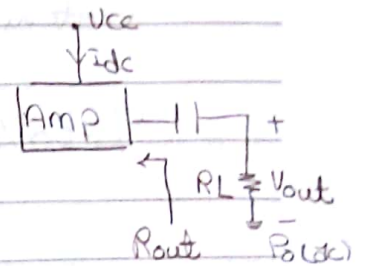 Vcc
idc
Amp
+
RL Vout
-
Rout Po(ac)